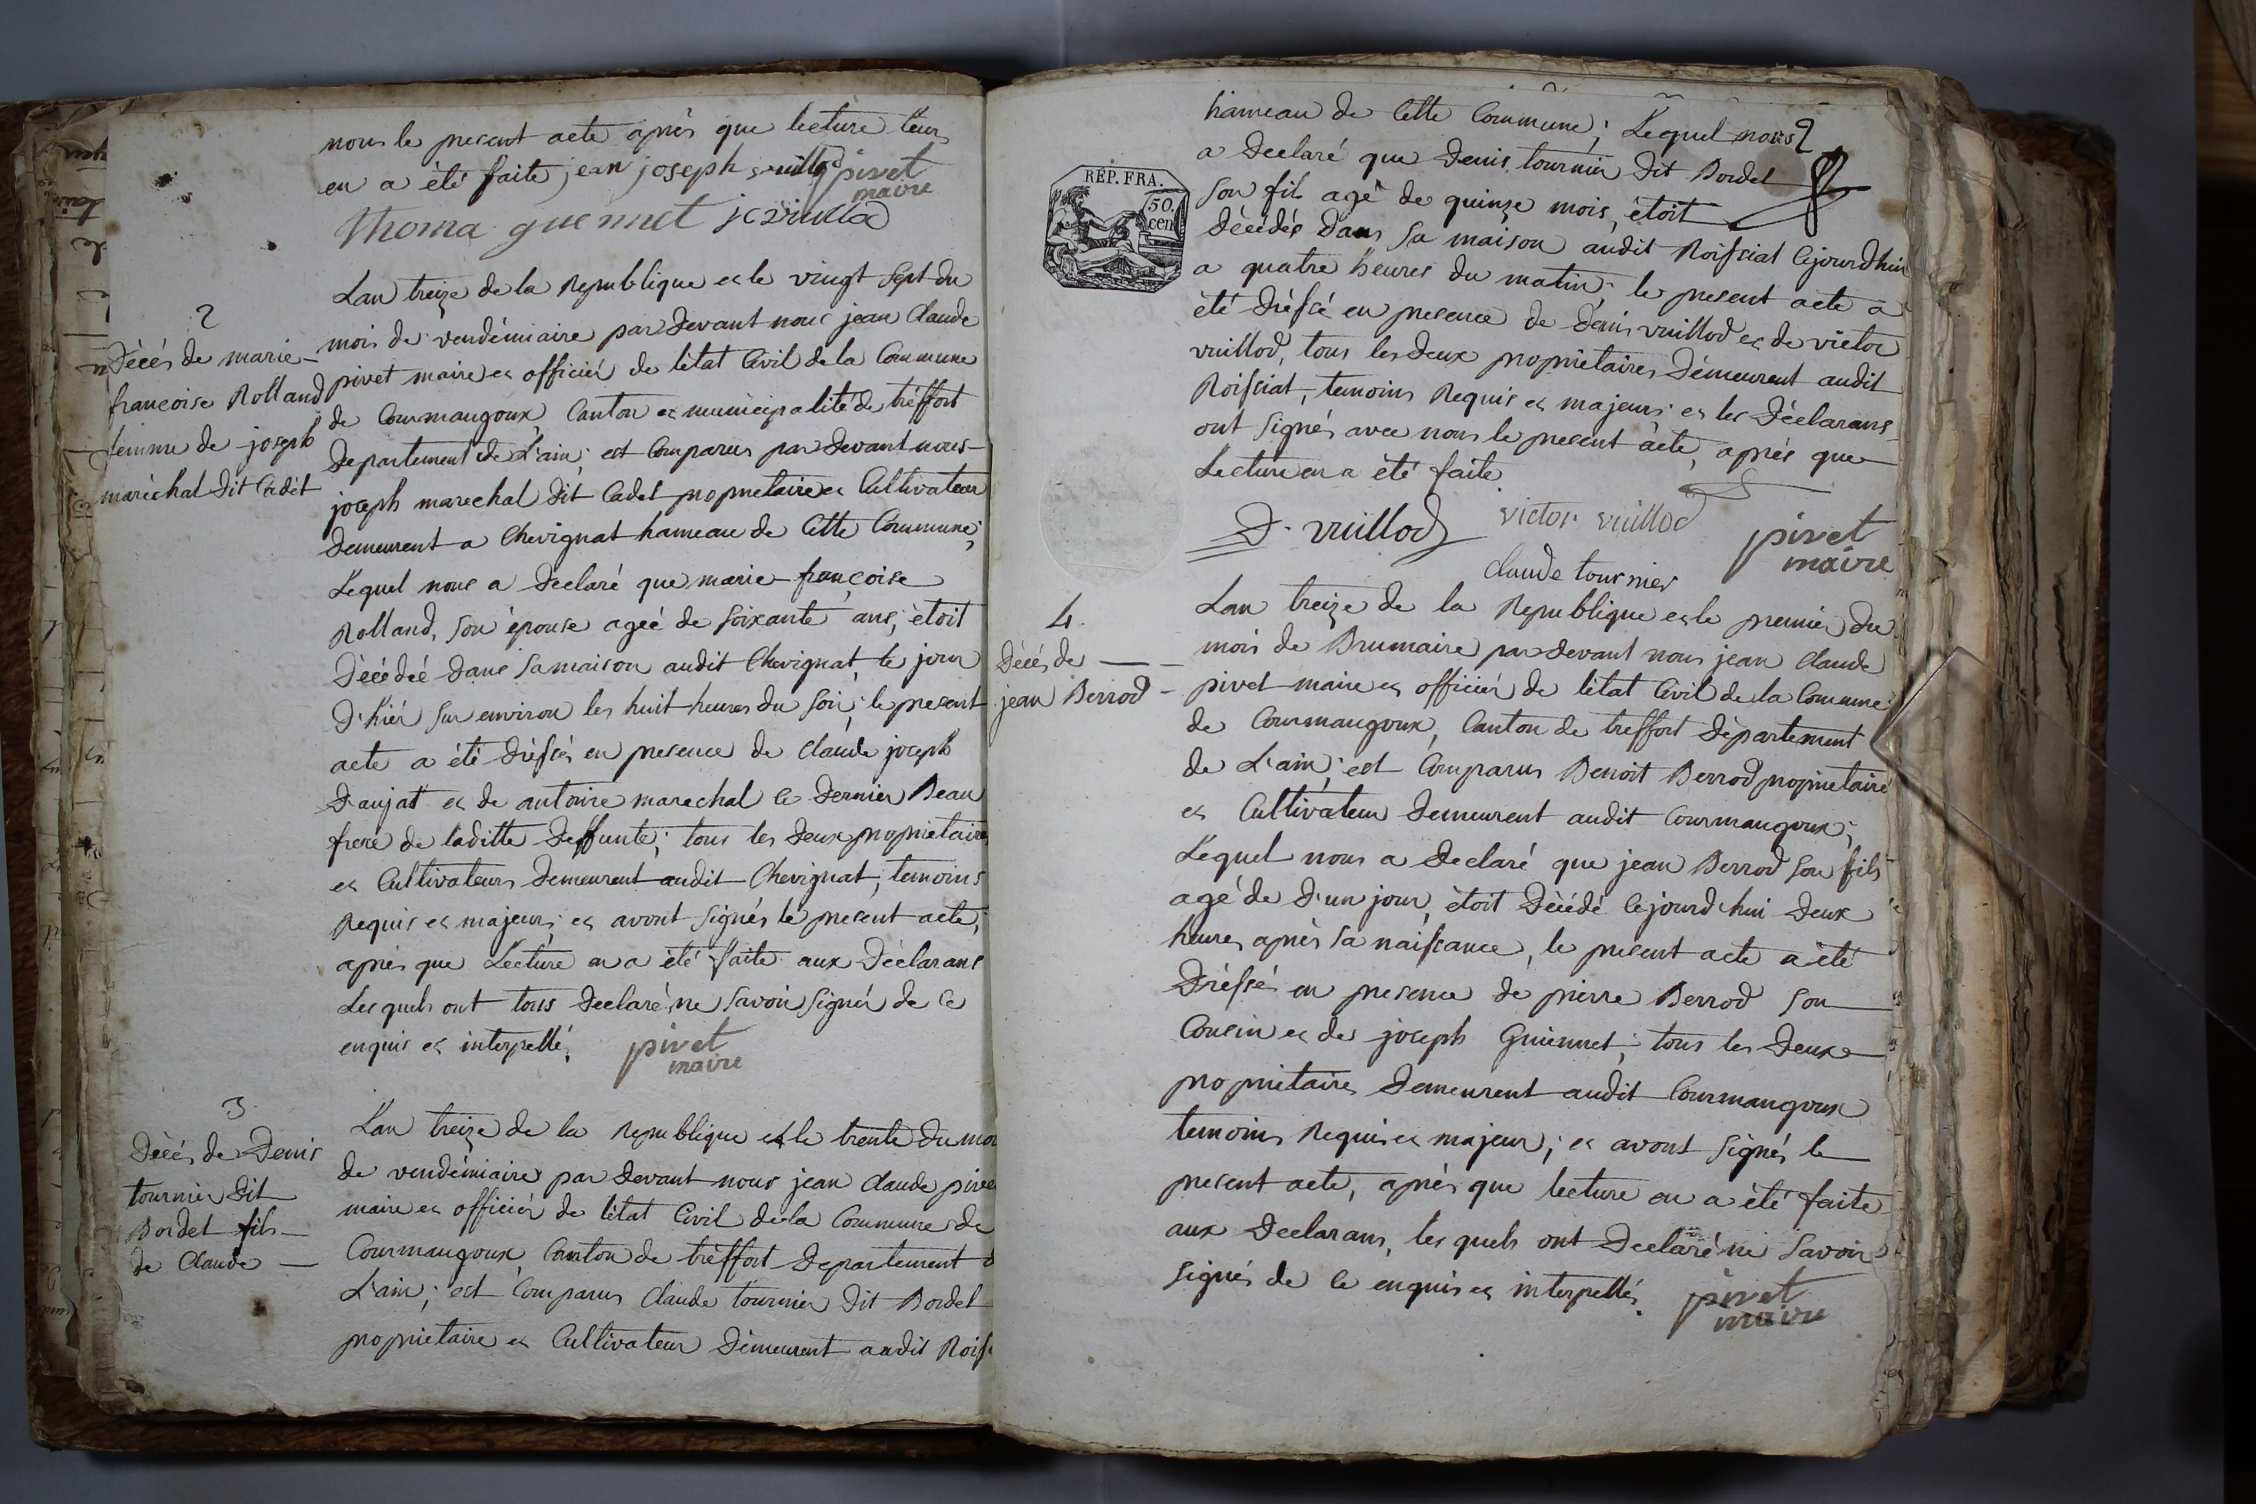 nous le present acte après que lecture leur
en a été faite jean joseph vuillod pivet
maire
Thoma guennet jcvuillod
2
Décés de marie
francoise Rolland
femme de joseph
maréchal dit Cadet
Lan treize de la Republique et le vingt Sept du
mois de vendémiaire par Devant nous jean Claude
pivet maire et officiér de létat Civil de la Commune
de Courmangoux, Canton et municipalité de tréffort
Departement de L'ain; est Comparus par Devant nous
joseph marechal dit Cadet propriétaire et Cultivateur
Demeurent a Chevignat hameau de Cette Commune;
Lequel nous a Declaré que marie françoise
Rolland, son épouse ageé de soixante ans, étoit
Décédeé dans sa maison audit Chevignat, le jour
D'hiér sur environ les huit heures du soir; le present
acte a été dréssés en presence de Claude joseph
Daujat et de antoine marechal ce Dernier Beau
frere de laditte Deffunte; tous les Deux proprietaires
et Cultivateurs Demeurent audit Chevignat, temoins
Requis et majeurs; et avont signés le present acte;
après que Lecture en a été faite aux Déclarans
Lesquels ont tous Declaré ne savoir signér de ce
enquis et interpellé.
pivet
maire
3.
Décés de Denis
tournier dit
Bordet fils
de Claude
Lan treize de la Republique et le trente du moi
de vendémiaire par Devant nous jean Claude pive
maire et officiér de létat Civil de la Commune de
Courmangoux Canton de tréffort Departement d
L'ain; est Comparus Claude tournier dit Bordet
proprietaire et Cultivateur Démeurent audit Roiss
RÉP. FRA.
50
cen
hameau de Cette Commune; Lequel nous
a Declaré que Denis tournier dit Bordet
son fils agé de quinze mois, étoit
Décédés dans sa maison audit Roissiat Cejourdhui
a quatre heures du matin. le present acte a
été dréssé en presence de Denis vuillod et de victor
vuillod, tous les deux proprietaires Démeurent audit
Roissiat, temoins Requis et majeurs et les Déclarans
ont signés avec nous le present acte, aprés que
Lecture en a été faite
D. vuillod victor vuillod pivet
maire
claude tournier
4.
Décés de
jean Berrod
Lan treize de la Republique et le premier du
mois de Brumaire par devant nous jean Claude
pivet maire et officiér de létat Civil de la Commune
de Courmangoux, Canton de treffort Département
de L'ain; est Comparus Benoit Berrod proprietaire
et Cultivateur Demeurent audit Courmangoux;
Lequel nous a Declaré que jean Berrod son fils
agé de d'un jour, étoit Décédé Cejourd'hui deux
heures après sa naissance, le present acte a été
Dréssés en presence de pierre Berrod son
Cousin et de joseph Guiennet; tous les Deux
proprietaires Demeurent audit Courmangoux
temoins Requis et majeur; et avont signés le
present acte, après que lecture en a été faite
aux Declarans, lesquels ont Declaré ne savoir
signés de ce enquis et interpellés.
pivet
maire